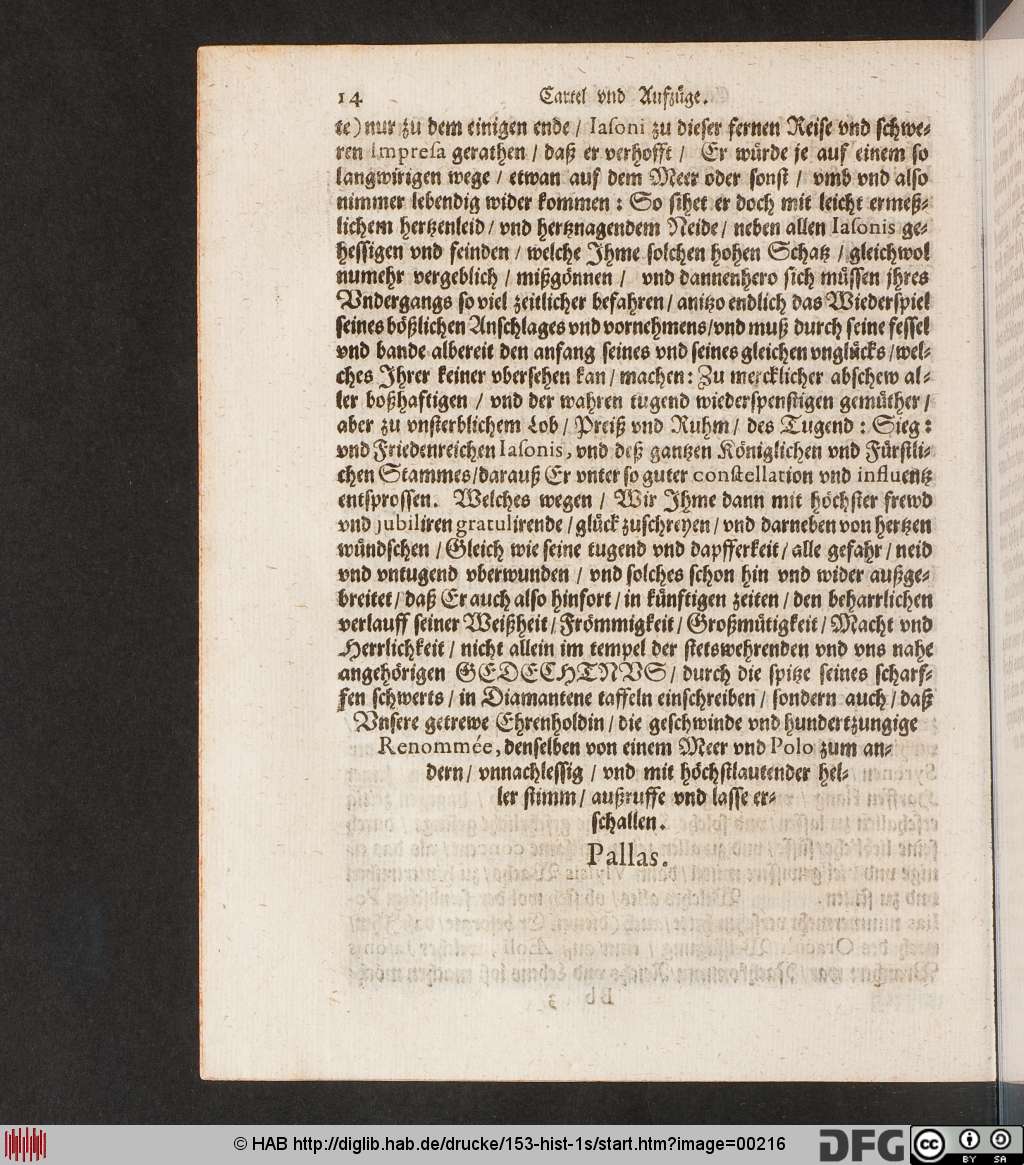 14 Cartel vnd Aufzüge.
te) nur zu dem einigen ende / Iasoni zu dieser fernen Reise vnd schwe-
ren impresa gerathen / daß er verhofft / Er würde je auf einem so
langwirigen wege / etwan auf dem Meer oder sonst / vmb vnd also
nimmer lebendig wider kommen : So sihet er doch mit leicht ermeß-
lichem hertzenleid / vnd hertznagendem Neide / neben allen Iasonis ge-
hessigen vnd feinden / welche Ihme solchen hohen Schatz / gleichwol
numehr vergeblich / mißgönnen / vnd dannenhero sich müssen jhres
Vndergangs so viel zeitlicher befahren / anitzo endlich das Wiederspiel
seines bößlichen Anschlages vnd vornehmens / vnd muß durch seine fessel
vnd bande albereit den anfang seines vnd seines gleichen vnglücks / wel-
ches Ihrer keiner vbersehen kan / machen : Zu mercklicher abschew al-
ler boßhaftigen / vnd der wahren tugend wiederspenstigen gemüther /
aber zu vnsterblichem Lob / Preiß vnd Ruhm / des Tugend : Sieg :
vnd Friedenreichen Iasonis, vnd deß gantzen Königlichen vnd Fürstli-
chen Stammes / darauß Er vnter so guter constellation vnd influentz
entsprossen. Welches wegen / Wir Ihme dann mit höchster frewd
vnd jubiliren gratulirende / glück zuschreyen / vnd darneben von hertzen
wündschen / Gleich wie seine tugend vnd dapfferkeit / alle gefahr / neid
vnd vntugend vberwunden / vnd solches schon hin vnd wider außge-
breitet / daß Er auch also hinfort / in künftigen zeiten / den beharrlichen
verlauff seiner Weißheit / Frömmigkeit / Großmütigkeit / Macht vnd
Herrlichkeit / nicht allein im tempel der stetswehrenden vnd vns nahe
angehörigen GEDECHTNVS / durch die spitze seines scharf-
fen schwerts / in Diamantene taffeln einschreiben / sondern auch / daß
Vnsere getrewe Ehrenholdin / die geschwinde vnd hundertzungige
Renommée, denselben von einem Meer vnd Polo zum an-
dern / vnnachlessig / vnd mit höchstlautender hel-
ler stimm / außruffe vnd lasse er-
schallen.
Pallas.
© HAB http://diglib.hab.de/drucke/153-hist-1s/start.htm?image=00216
DFG
cc
BY SA